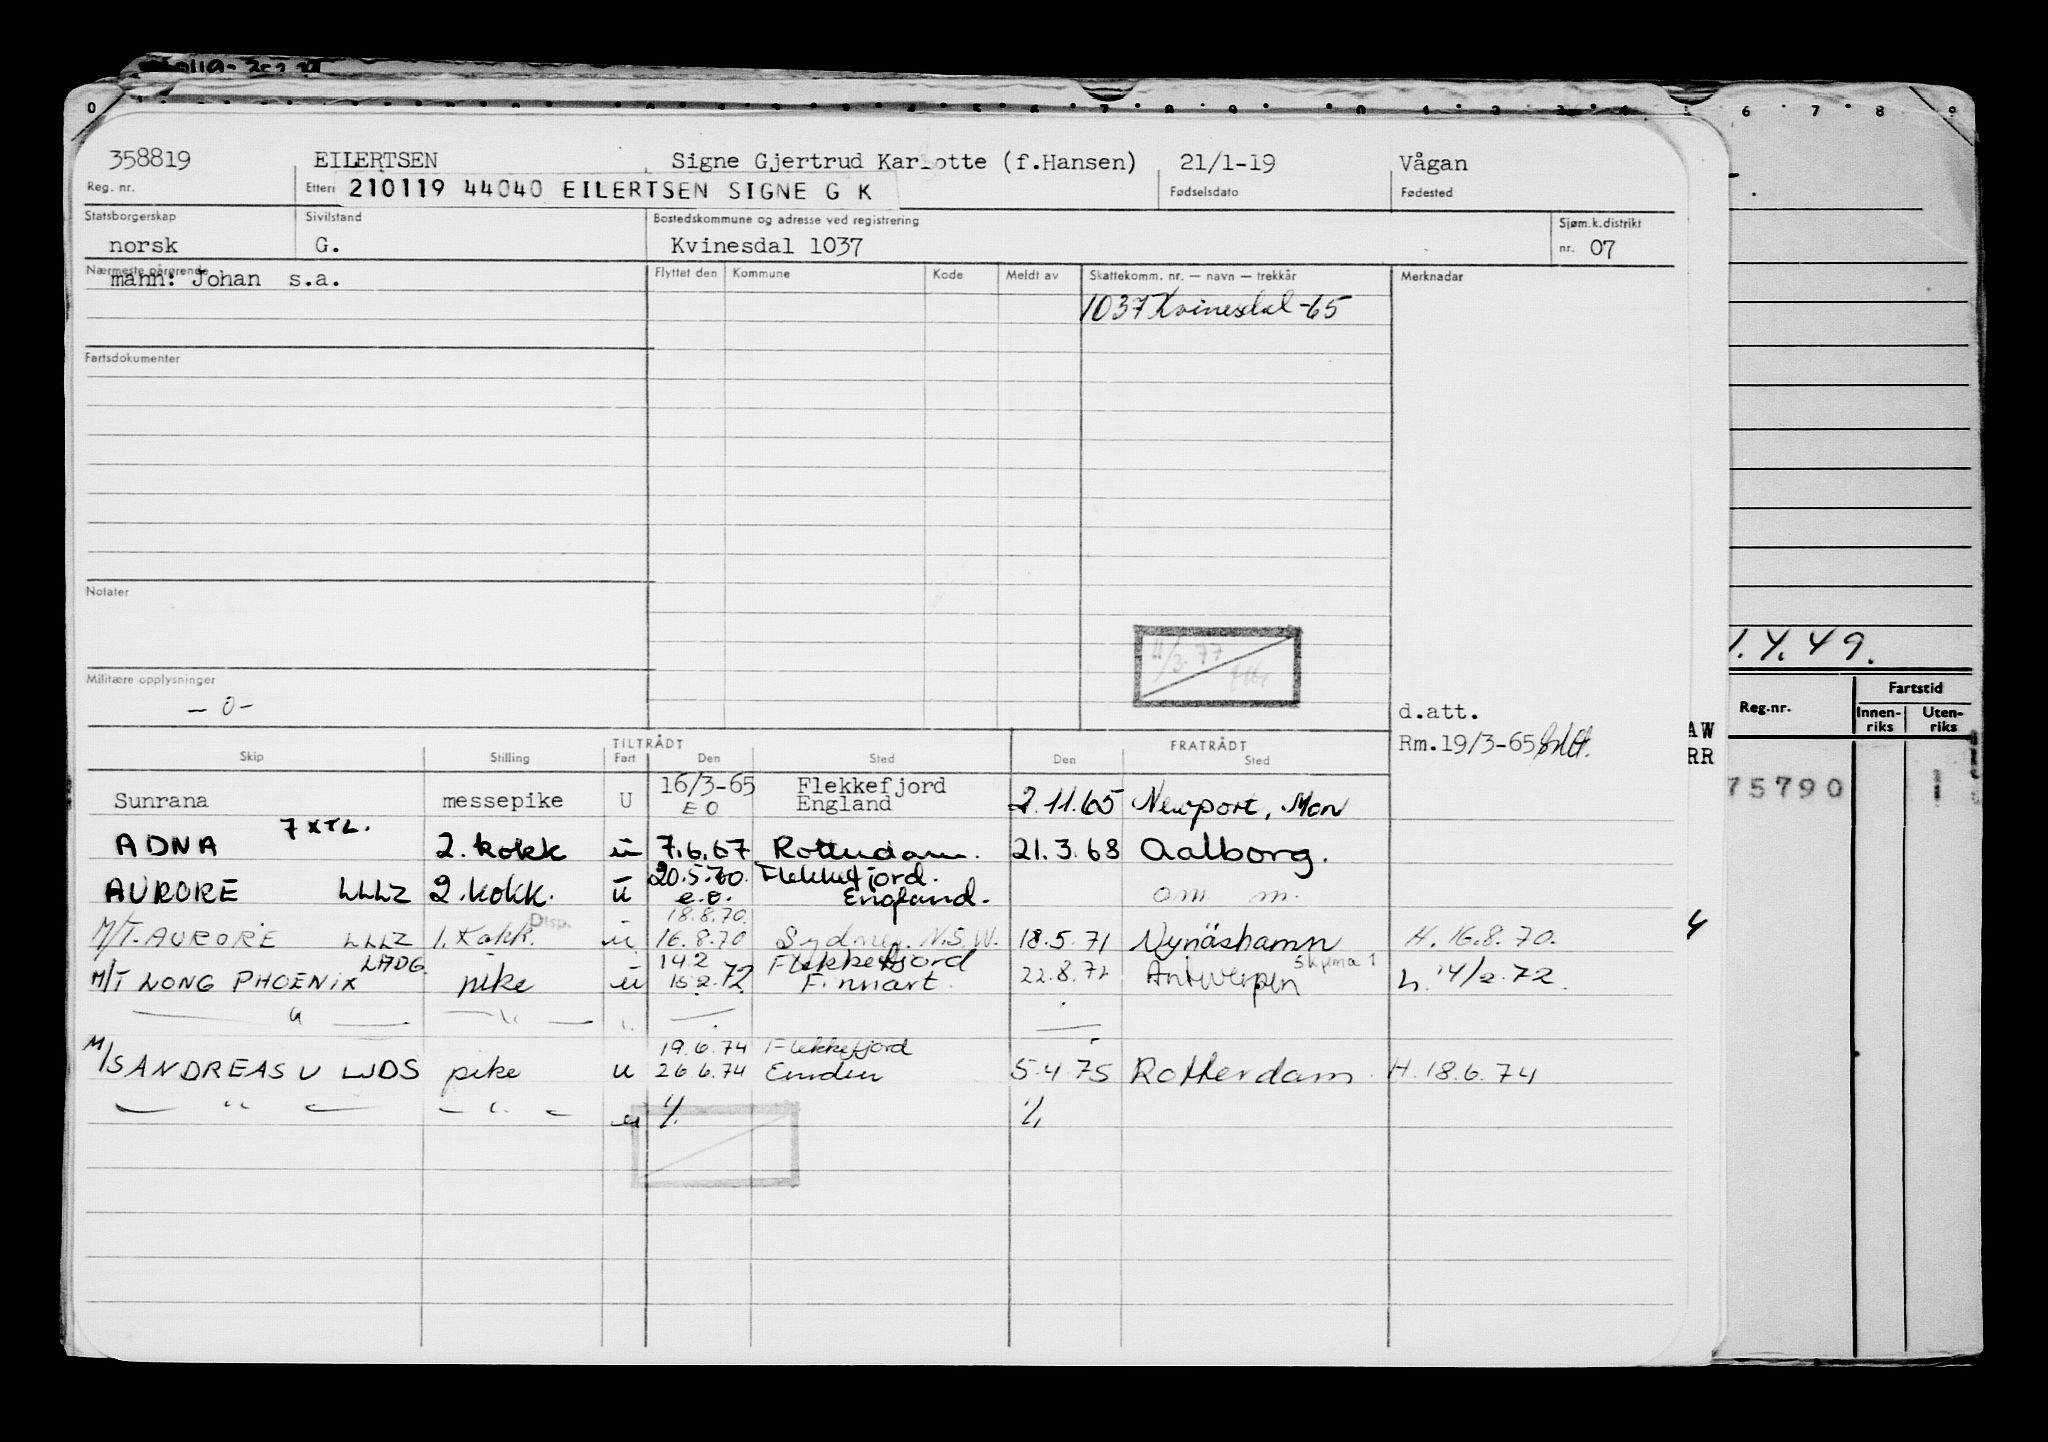 358819 EILERTSEN Signe Gjertrud Karlotte (f.Hansen) 21/1-19 Vågan
Reg. nr. Etter 210119 44040 EILERTSEN SIGNE G K Fødselsdato Fødested
Statsborgerskap Sivilstand Bostedskommune og adresse ved registrering Sjøm.k.distrikt
norsk G. Kvinesdal 1037 nr. 07
Nærmeste pårørende Flyttet den Kommune Kode Meldt av Skattekomm. nr. — navn — trekkår Merknadar
mann: Johan s.a.
1037 Kvinesdal -65
Fartsdokumenter
Notater
11/3-77
1.4.49.
Militære opplysninger
- 0 -
Reg.nr. Fartstid
Innenriks Utenriks
d.att.
Rm.19/3-65
AW
RR
TILTRÅDT FRATRÅDT
Skip Stilling Fart Den Sted Den Sted
16/3-65 Flekkefjord
Sunrana messepike U E O England 2.11.65 Newport, Mon
75790 1
ADNA 7XTL. 2. kokk u 7.6.67 Rotterdam. 21.3.68 Aalborg.
20.5.70. Flekkefjord.
AURORE LLLZ 2. kokk. u e.o. England. om. m.
18.8.70.
M/T. AURORE LLLZ 1. kokk. Disp. u 16.8.70 Sydney. N.S.W. 18.5.71 Nynäshamn H. 16.8.70. 4
14.2 Flekkefjord Skjema 1
M/T LONG PHOENIX LADG. pike u 15.2.72 Finnart. 22.8.72 Antwerpen h. 14/2.72.
— " — — " —
19.6.74 Flekkefjord
M/S ANDREAS U LJDS pike u 26.6.74 Emden 5.4.75 Rotterdam. H. 18.6.74
— " — — " — u % %